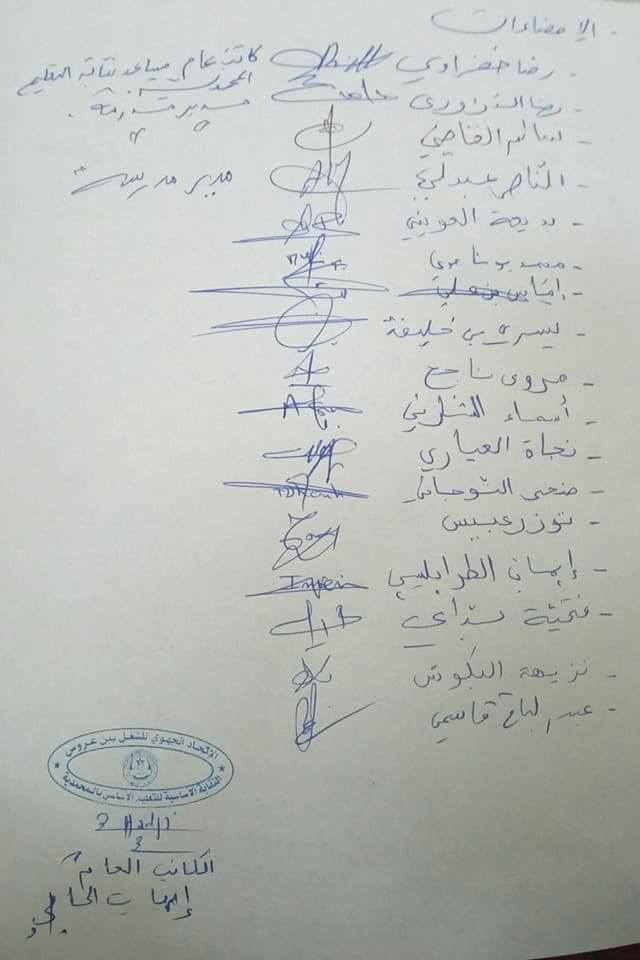 الإمضاءات
- رضا خضراوي كاتب عام مساعد نقابة التعليم
المحمدية
- رضا الزواري مدير مدرسة
- سالم القاضي
- الناصر عبدلي مدير مدرسة
- بديعة العويني
- محمد بوناموي
- يسرى بن خليفة
- مروى ناجح
- أسماء الشارني
- نجاة العياري
- ضحى التوجاني
- نوزر عبيس
- إيمان الطرابلسي
- فتحية سداي
- نزيهة البكوش
- عبد الباقي قاسمي
الاتحاد الجهوي للشغل ببن عروس
النقابة الأساسية للتعليم الأساسي بالمحمدية
الكاتب العام
إيهاب